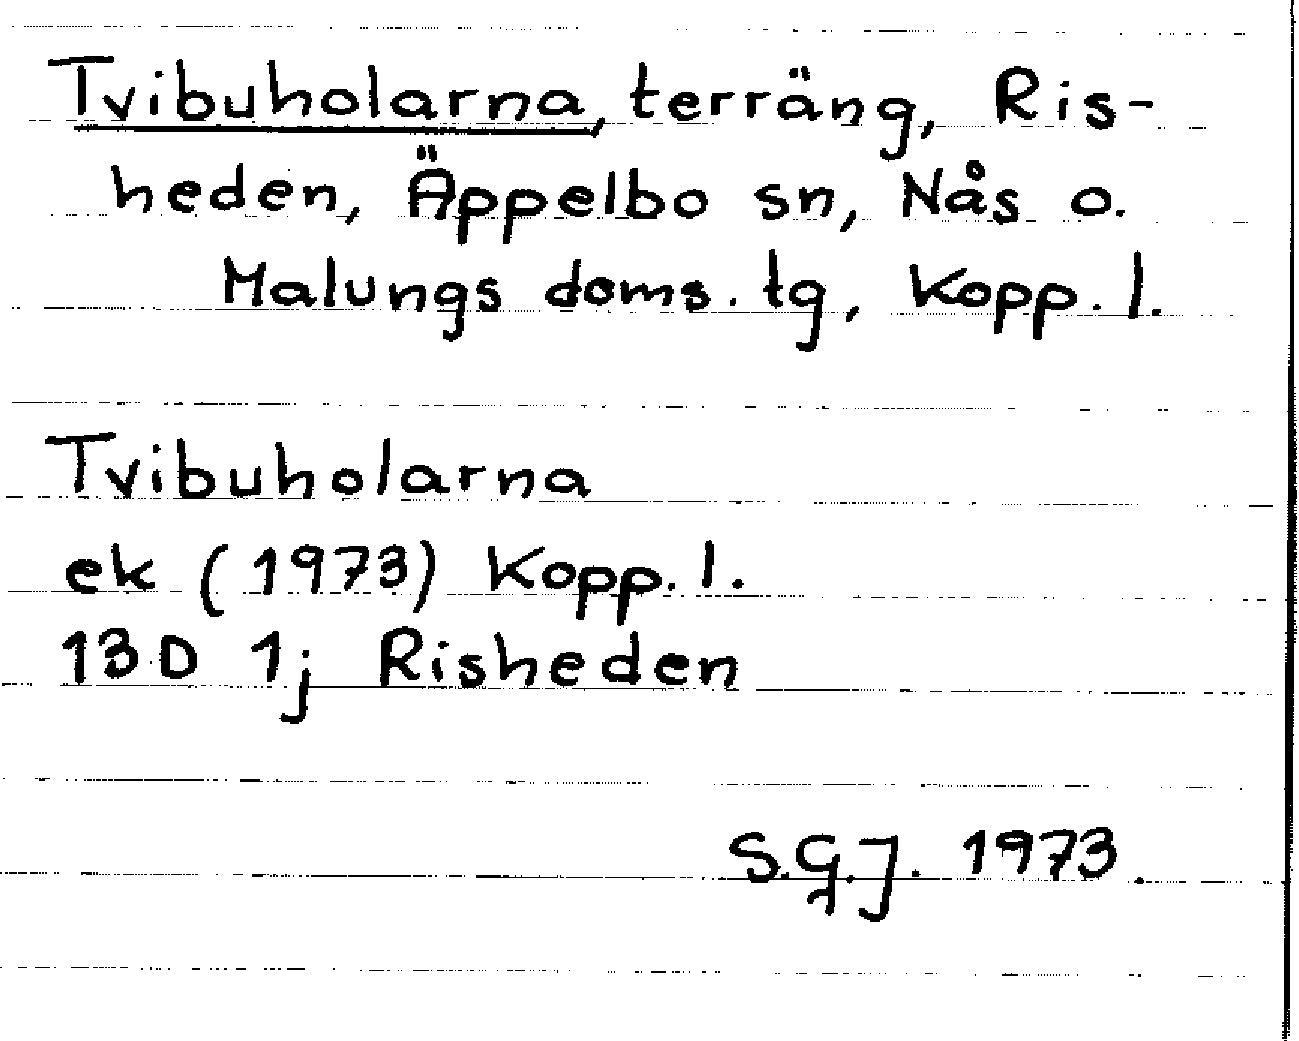 Tvibuholarna, terräng, Ris-
heden, Äppelbo sn, Nås o.
Malungs doms. tg, Kopp. l.
Tvibuholarna
ek (1973) Kopp. l.
13D 1j Risheden
S.G.J. 1973.